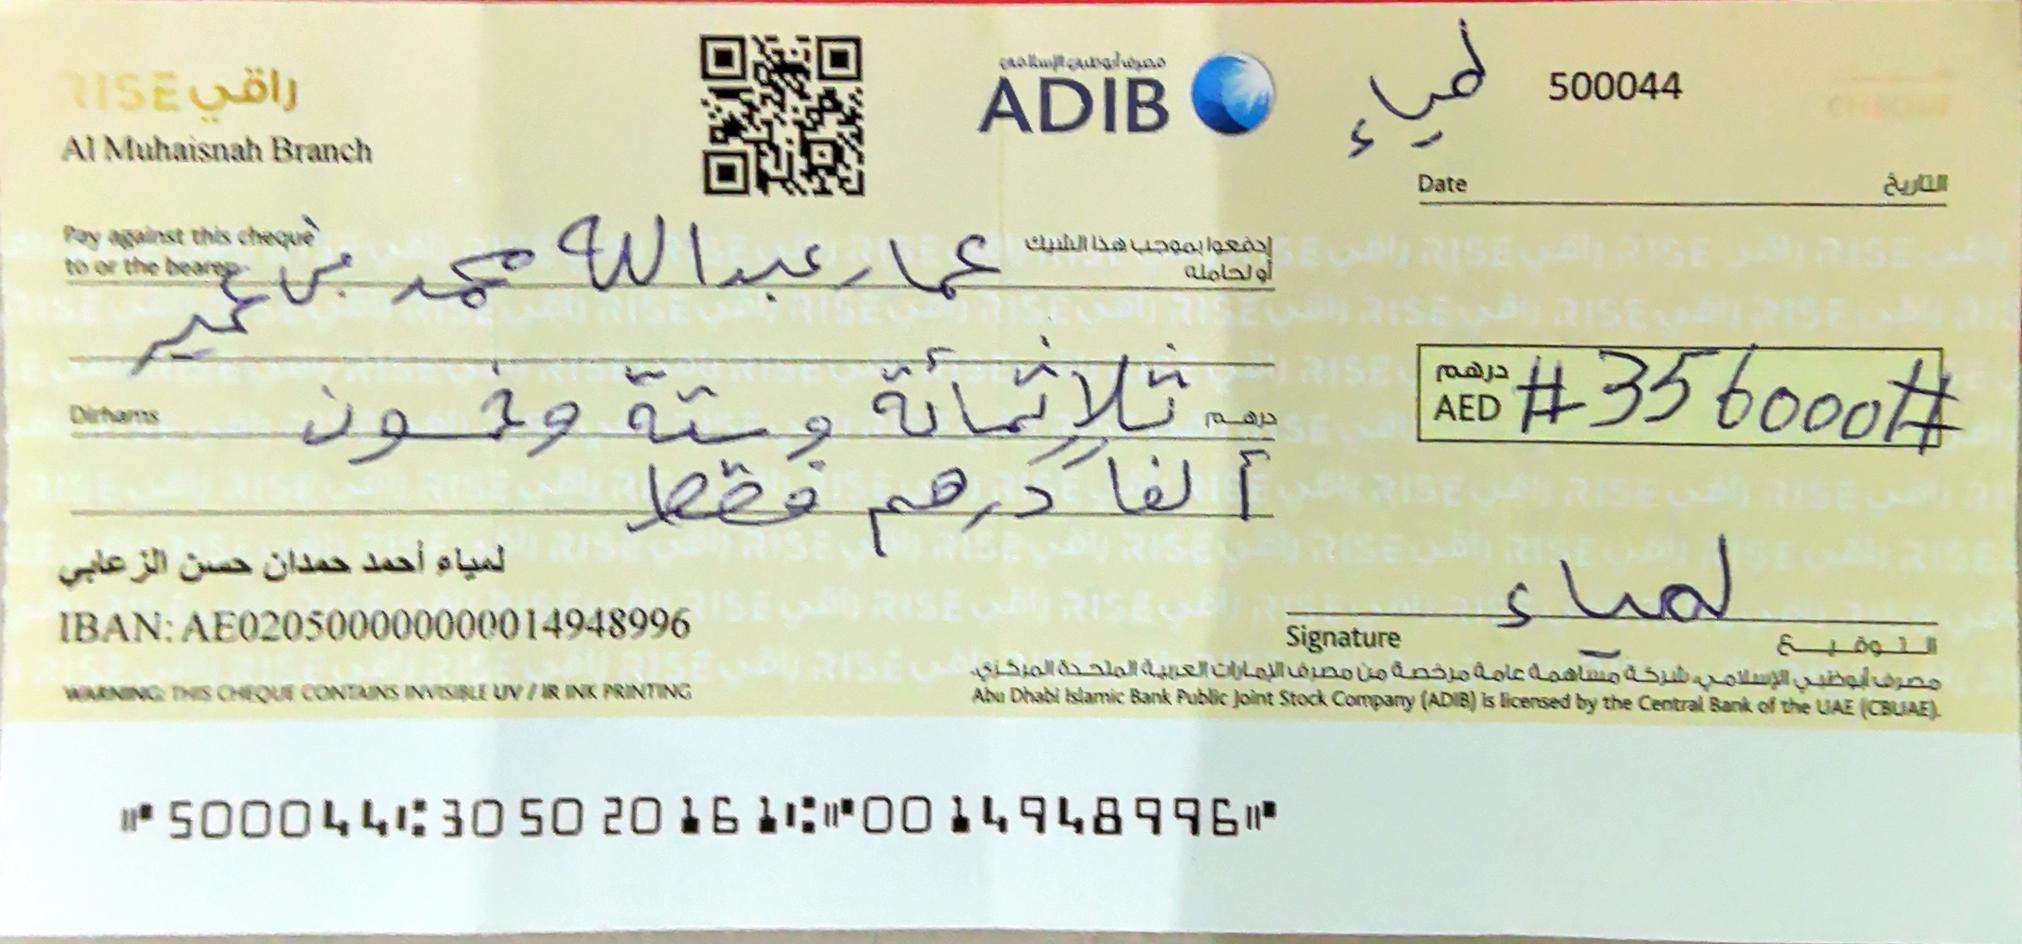 RISE راقي
Al Muhaisnah Branch
مصرف أبوظبي الإسلامي
ADIB
لمياء
500044
Date التاريخ
Pay against this cheque
to or the bearer
إدفعوا بموجب هذا الشيك
أو لحامله
عمار عبدالله محمد بن عمير
درهم
AED
#356000#
Dirhams درهم
ثلاثمائة وستة وخمسون
ألفا درهم فقط
لمياء أحمد حمدان حسن الزعابي
IBAN: AE020500000000014948996
لمياء
Signature التوقيع
WARNING: THIS CHEQUE CONTAINS INVISIBLE UV / IR INK PRINTING
مصرف أبوظبي الإسلامي، شركة مساهمة عامة مرخصة من مصرف الإمارات العربية المتحدة المركزي.
Abu Dhabi Islamic Bank Public Joint Stock Company (ADIB) is licensed by the Central Bank of the UAE (CBUAE).
⑈500044⑆305020161⑆⑈0014948996⑈